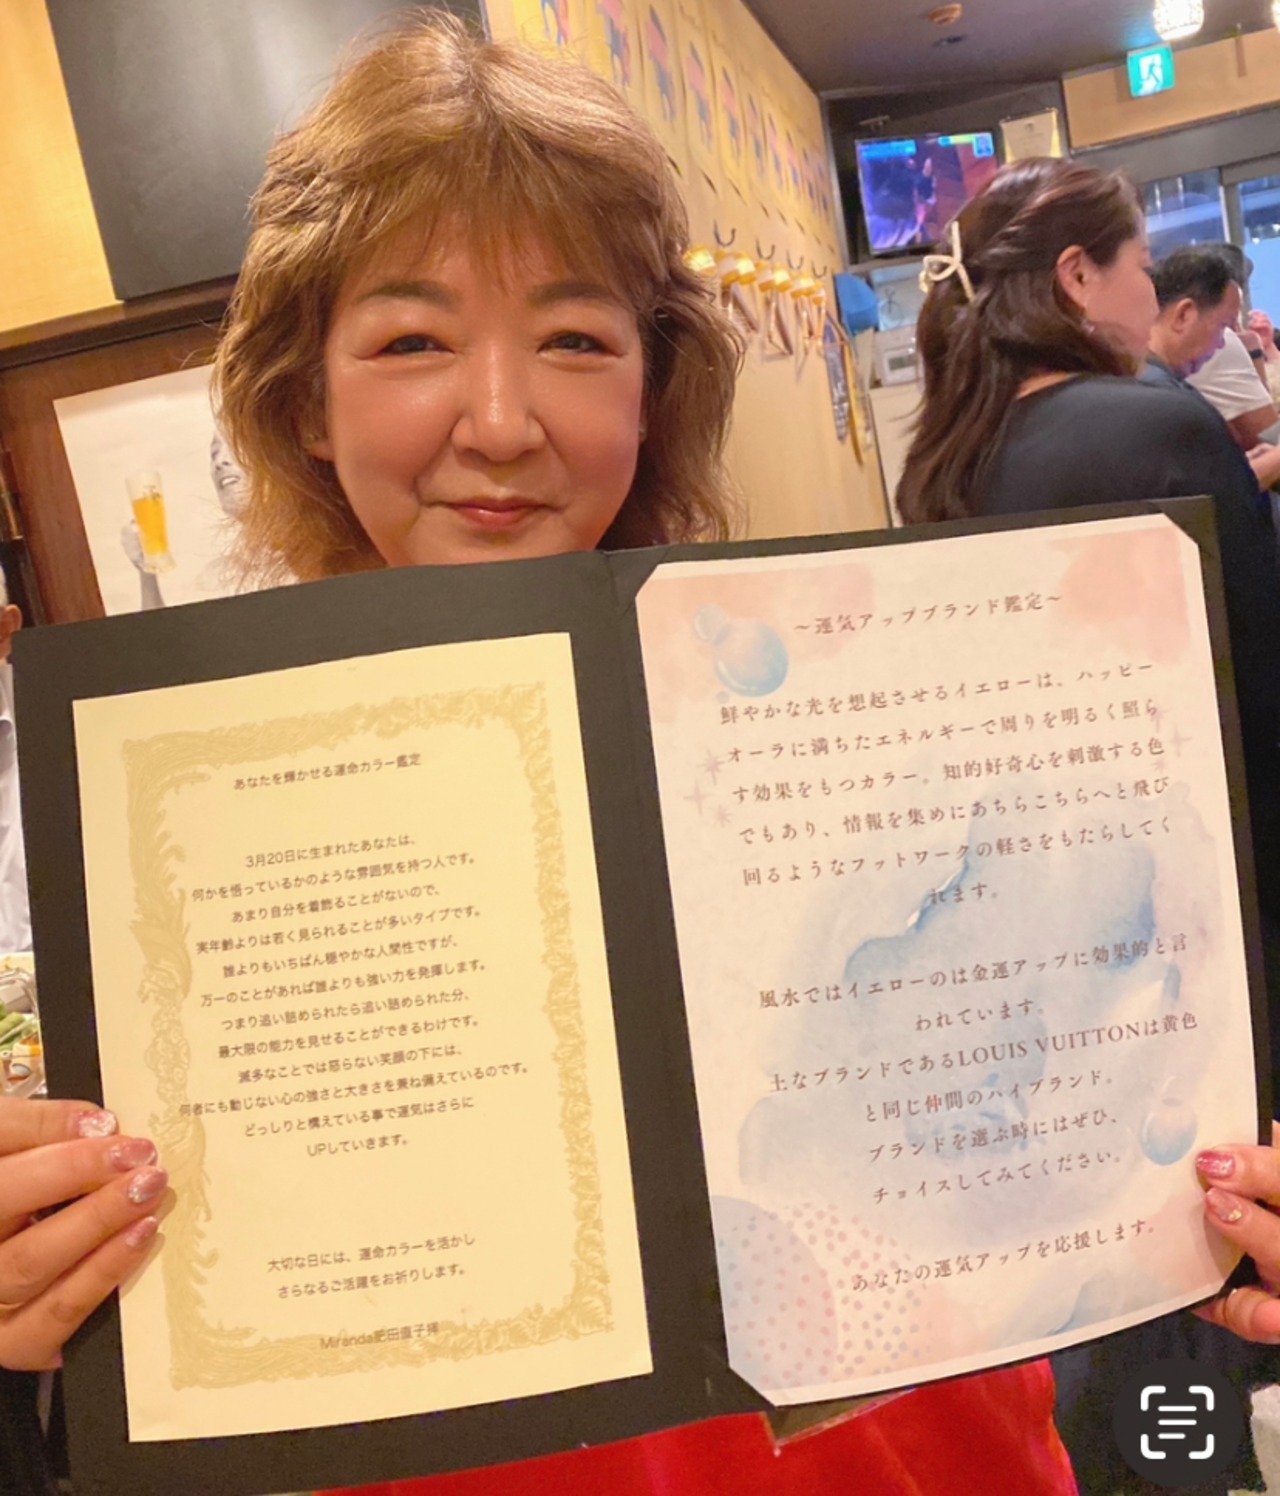 あなたを輝かせる運命カラー鑑定
3月20日に生まれたあなたは、
何かを悟っているかのような雰囲気を持つ人です。
あまり自分を着飾ることがないので、
実年齢よりは若く見られることが多いタイプです。
誰よりもいちばん穏やかな人間性ですが、
万一のことがあれば誰よりも強い力を発揮します。
つまり追い詰められたら追い詰められた分、
最大限の能力を見せることができるわけです。
滅多なことでは怒らない笑顔の下には、
何者にも動じない心の強さと大きさを兼ね備えているのです。
どっしりと構えている事で運気はさらに
UPしていきます。
大切な日には、運命カラーを活かし
さらなるご活躍をお祈りします。
Miranda肥田直子拝
～運気アップブランド鑑定～
鮮やかな光を想起させるイエローは、ハッピー
オーラに満ちたエネルギーで周りを明るく照ら
す効果をもつカラー。知的好奇心を刺激する色
でもあり、情報を集めにあちらこちらへと飛び
回るようなフットワークの軽さをもたらしてく
れます。
風水ではイエローのは金運アップに効果的と言
われています。
土なブランドであるLOUIS VUITTONは黄色
と同じ仲間のハイブランド。
ブランドを選ぶ時にはぜひ、
チョイスしてみてください。
あなたの運気アップを応援します。